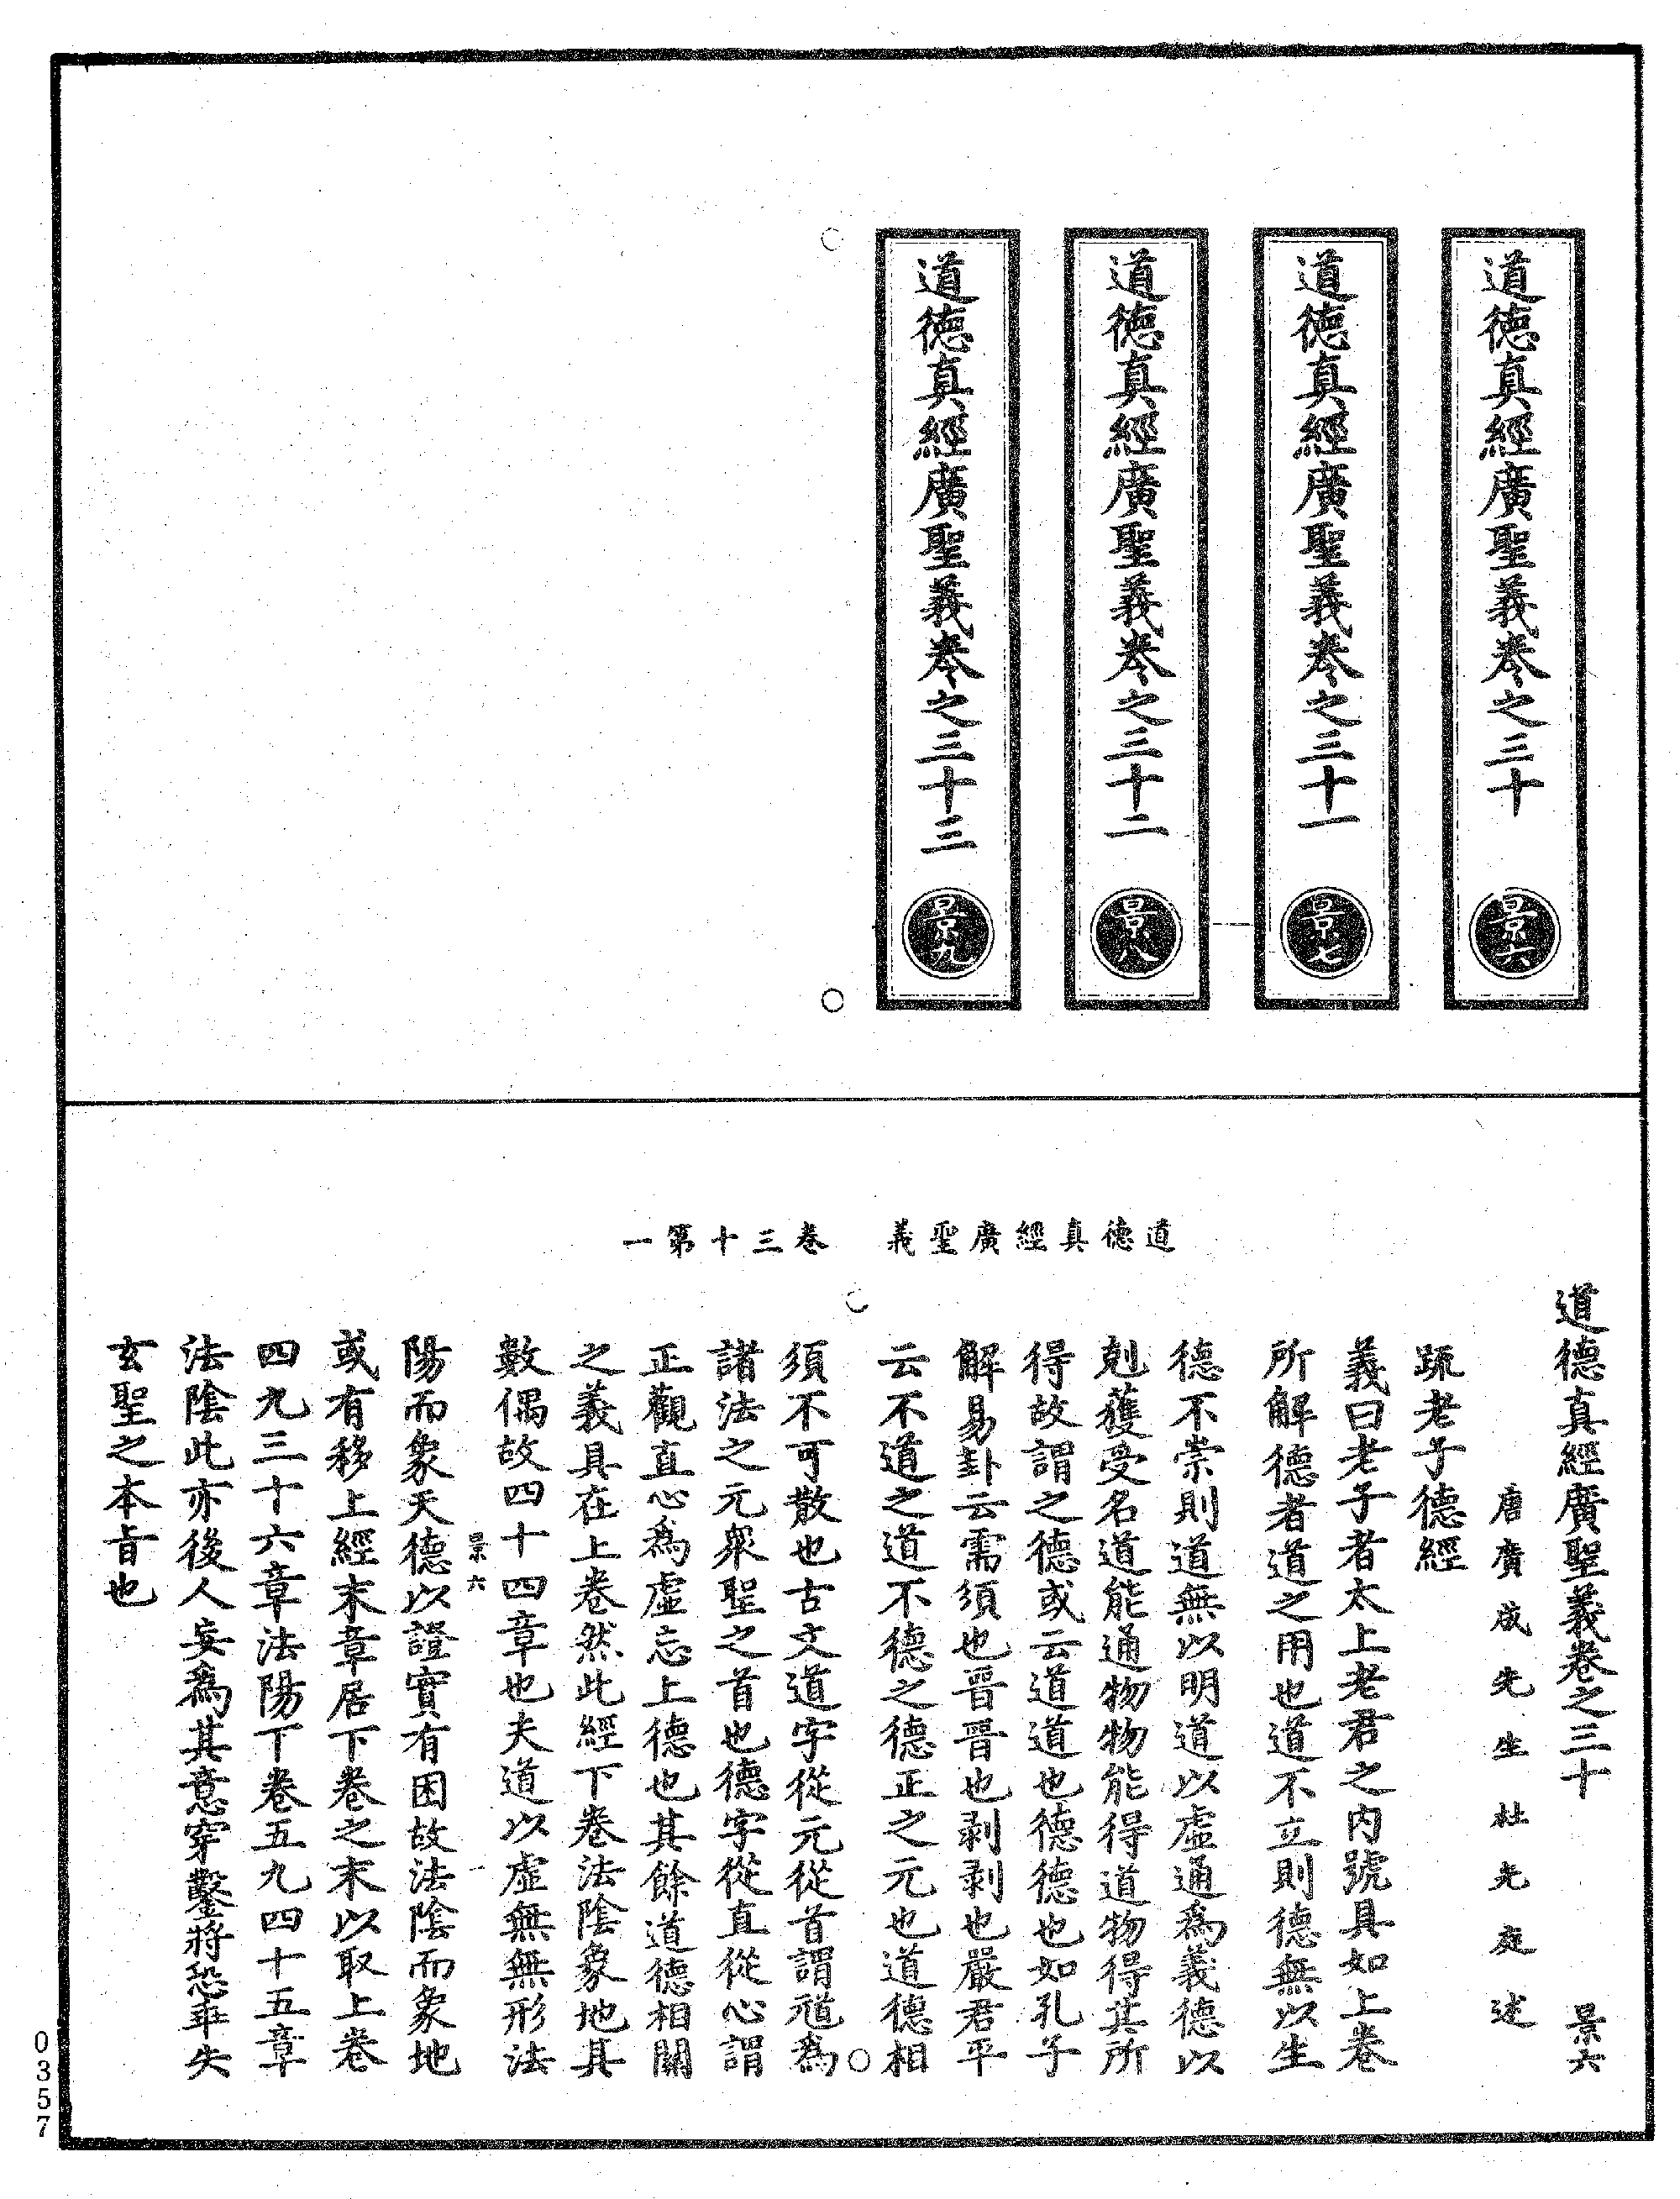 道德真經廣聖義卷之三十 景六
道德真經廣聖義卷之三十一 景七
道德真經廣聖義卷之三十二 景八
道德真經廣聖義卷之三十三 景九
道德真經廣聖義 卷三十第一
道德真經廣聖義卷之三十 景六
唐廣成先生杜光庭述
疏老子德經
義曰老子者太上老君之内號具如上卷
所解德者道之用也道不立則德無以生
德不崇則道無以明道以虛通為義德以
剋獲受名道能通物物能得道物得其所
得故謂之德或云道道也德德也如孔子
解易卦云需須也晉晋也剥剥也嚴君平
云不道之道不德之德正之元也道德相
須不可散也古文道字從元從首謂䢔為
諸法之元衆聖之首也德字從直從心謂
正觀直心為虛忘上德也其餘道德相關
之義具在上卷然此經下卷法陰象地其
數偶故四十四章也夫道以虛無無形法
景六
陽而象天德以證實有因故法陰而象地
或有移上經末章居下卷之末以取上卷
四九三十六章法陽下卷五九四十五章
法陰此亦後人妄為其意穿鑿將恐乖失
玄聖之本旨也
0357